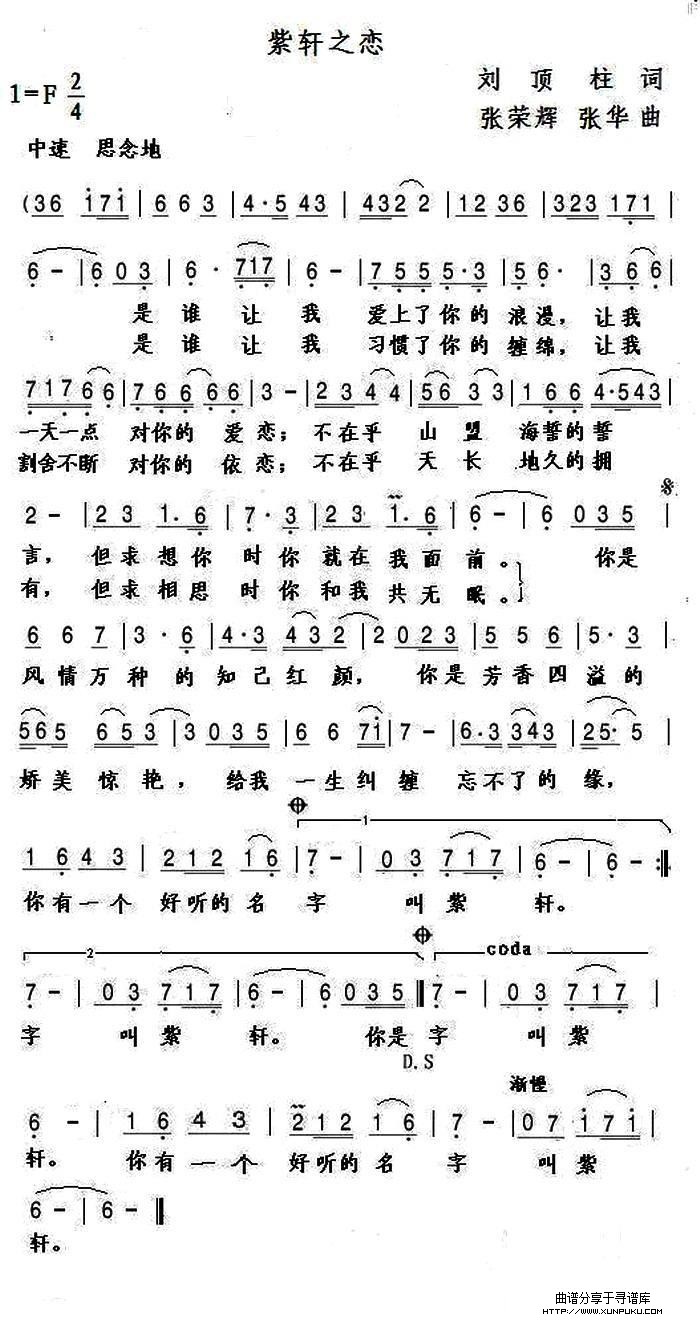 紫轩之恋
1=F 2/4
刘顶柱词
张荣辉 张华曲
中速 思念地
(36 171 | 663 | 4·5 43 | 4322 | 1236 | 323 171 |
6 - | 603 | 6· 717 | 6 - | 755 5·3 | 56· | 366 |
是谁让我 爱上了你的浪漫，让我
是谁让我 习惯了你的缠绵，让我
71766 | 76666 | 3 - | 2344 | 5633 | 166 4·543 |
一天一点 对你的爱恋；不在乎 山盟 海誓的誓
割舍不断 对你的依恋；不在乎 天长 地久的拥
2 - | 23 1·6 | 7·3 | 23 1·6 | 6 - | 6 035 |
言，但求想你时你就在我面前。 你是
有，但求相思时你和我共无眠。
667 | 3·6 | 4·3 432 | 2023 | 556 | 5·3 |
风情万种的知己红颜， 你是芳香四溢的
565 653 | 3035 | 66 71 | 7 - | 6·3 343 | 25·5 |
娇美惊艳，给我一生纠缠 忘不了的缘，
1
1643 | 212 16 | 7 - | 03 717 | 6 - | 6 - :||
你有一个好听的名字 叫紫轩。
2 coda
7 - | 03 717 | 6 - | 6035 || 7 - | 03 717 |
字 叫紫轩。 你是字 叫紫
D.S
渐慢
6 - | 1643 | 212 16 | 7 - | 07 171 |
轩。 你有一个好听的名字 叫紫
6 - | 6 - ||
轩。
曲谱分享于寻谱库
HTTP://WWW.XUNPUKU.COM